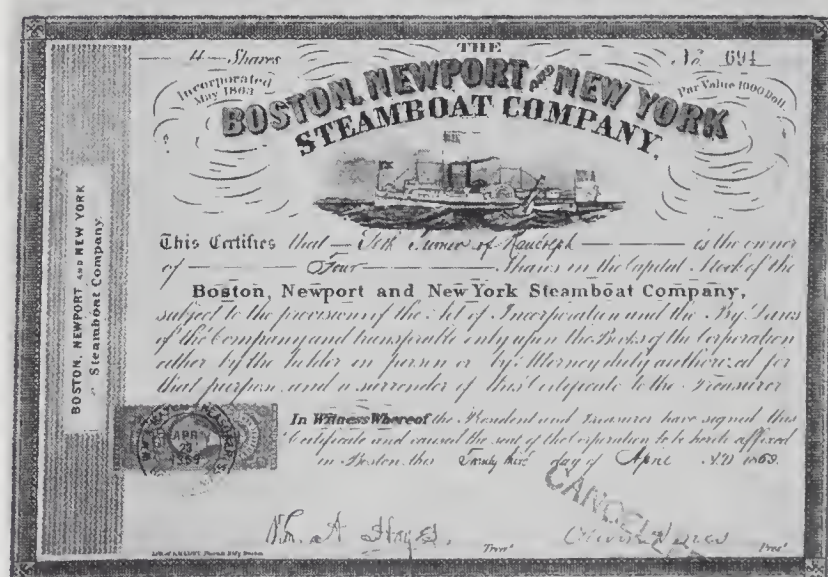 4 Shares
THE
No. 694
Incorporated
May 1863
Par Value 1000 Doll.
BOSTON, NEWPORT AND NEW YORK
STEAMBOAT COMPANY.
BOSTON, NEWPORT AND NEW YORK
Steamboat Company.
This Certifies that Seth Turner of Randolph is the owner
of Four Shares in the Capital Stock of the
Boston, Newport and New York Steamboat Company,
subject to the provision of the Act of Incorporation and the By-Laws
of the Company and transferable only upon the Books of the Corporation
either by the holder in person or by Attorney duly authorized for
that purpose and a surrender of this Certificate to the Treasurer
In Witness Whereof the President and Treasurer have signed this
Certificate and caused the seal of the Corporation to be hereto affixed
in Boston this Twenty third day of April A.D. 1869.
APR
23
1869
CANCELLED
Wm. A Hayes.
Treas'r
Pres't